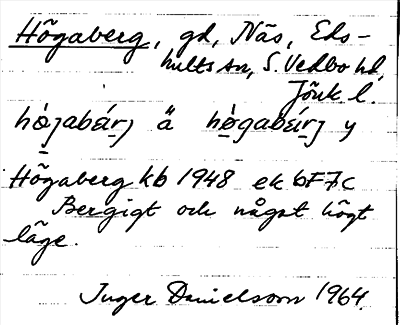 Högaberg, gd, Näs, Eds-
hults sn, S. Vedbo hd,
Jönk. l.
hö̀jabǽrj ä hö̀gabǽrj y
Högaberg kb 1948 ek 6F7c
Bergigt och något högt
läge.
Inger Danielsson 1964.